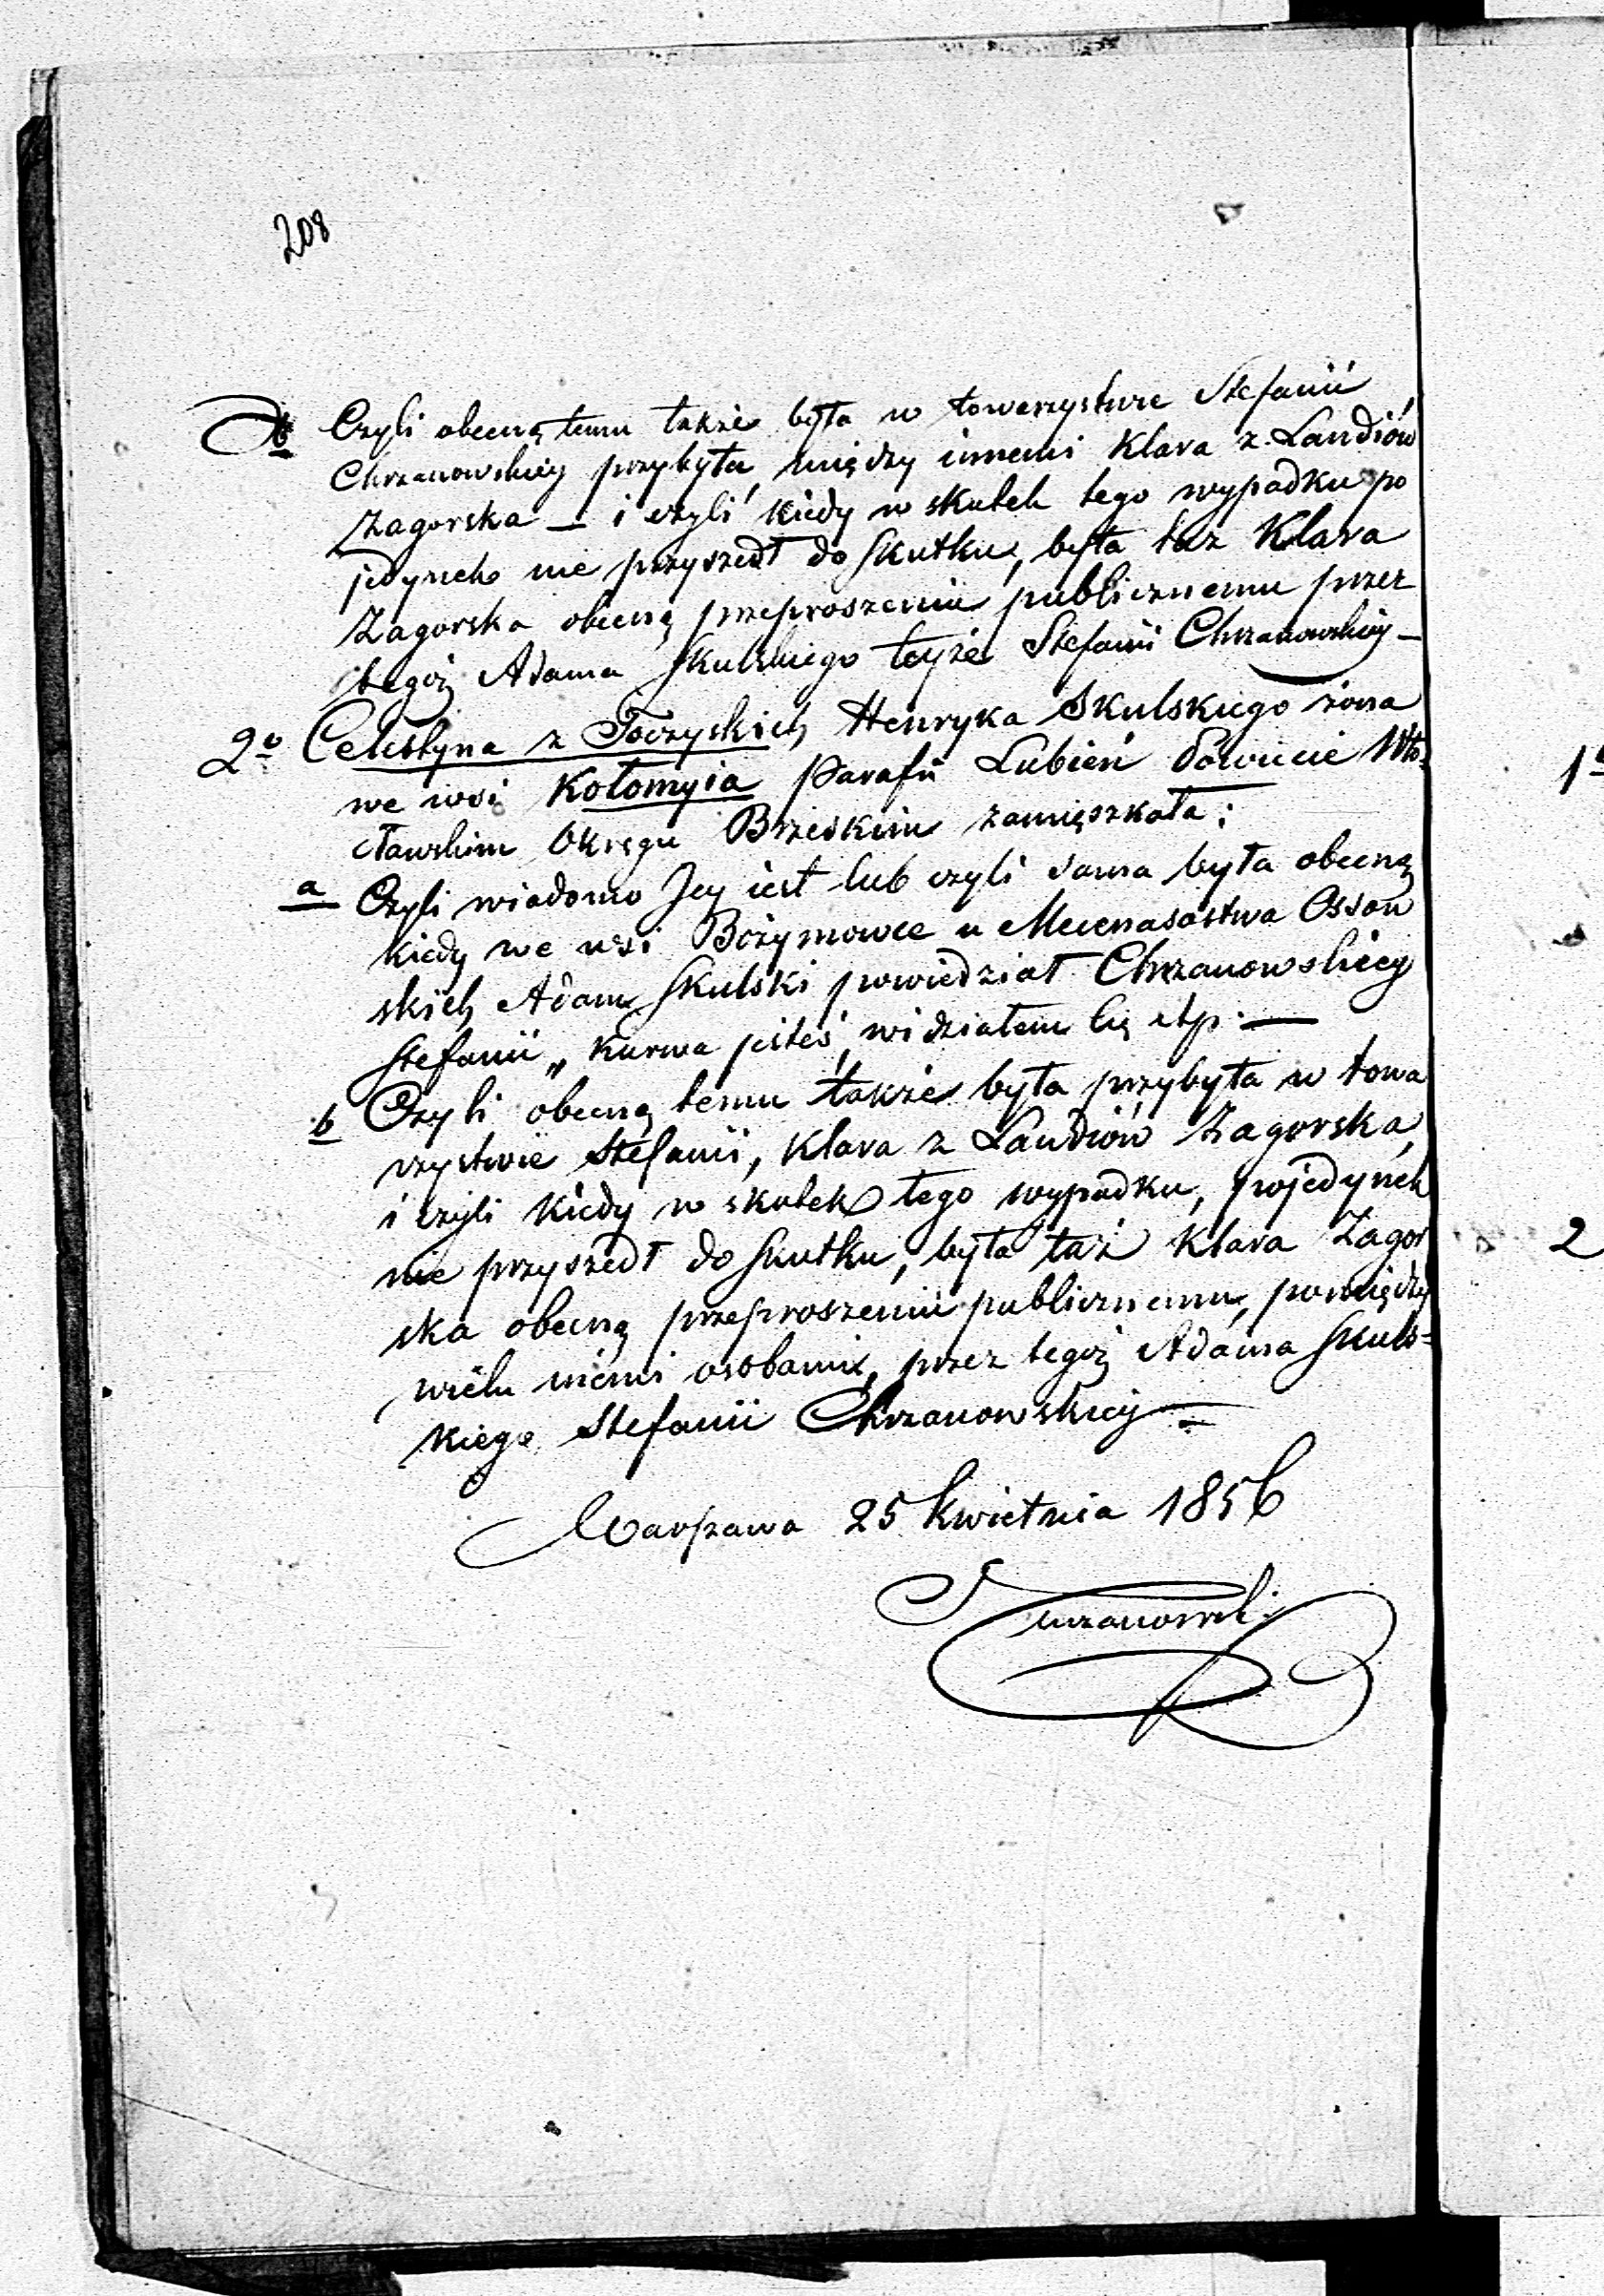 208
b Czyli obecną temu także była w towarzystwie Stefanii
Chrzanowskiey przybyła, między innemi Klara z Landiów
Zagorska — i czyli kiedy w skutek tego wypadku po
jedynek nie przyszedł do skutku, była taż Klara
Zagorska obecną przeproszeniu publicznemu przez
tegoż Adama Skulskiego teyże Stefanii Chrzanowskiey —
2o Celestyna z Toczyskich Henryka Skulskiego żona
we wsi Kołomyia Parafii Lubień Powiecie Wło-
cławskim Okręgu Brzeskim zamięszkała:
a Czyli wiadomo Jey iest lub czyli sama była obecną
kiedy we wsi Bożymowce u Mecenasostwa Osson
skich Adam Skulski powiedział Chrzanowskiey
Stefanii „ Kurwa jesteś, widziałem Cię etp. —
b Czyli obecną temu także była przybyła w towa
rzystwie Stefanii, Klara z Landiów Zagorska,
i czyli kiedy w skutek tego wypadku, pojedynek
nie przyszedł do skutku, była taż Klara Zagor
ska obecną przeproszeniu publicznemu, pomiędzy
wielu inemi osobami, przez tegoż Adama Skuls=
kiego Stefanii Chrzanowskiey —
Warszawa 25 Kwietnia 1856
1o
2